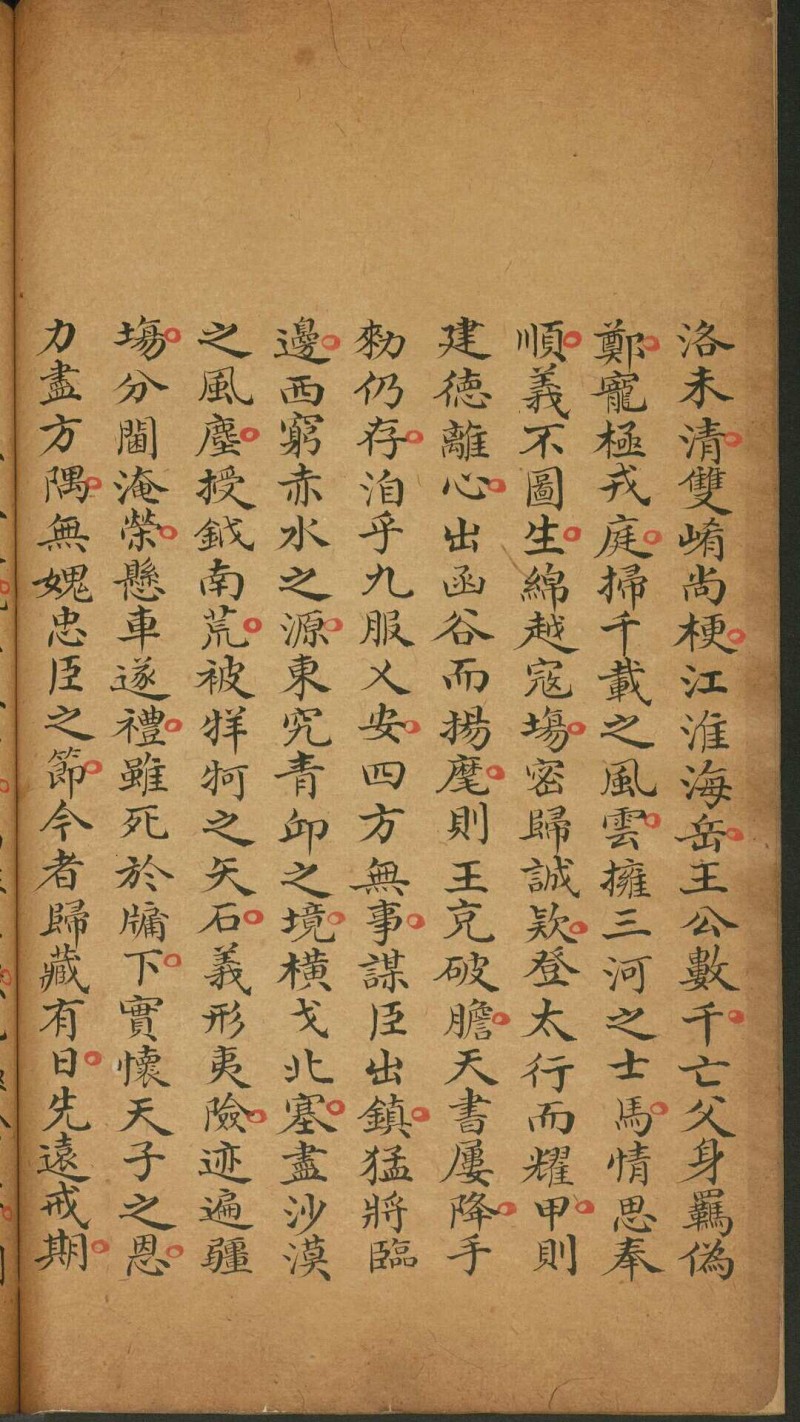 洛未清雙崤尚梗江淮海岳王公數千亡父身羈偽
鄭寵極戎庭掃千載之風雲擁三河之士馬情思奉
順義不圖生綿越寇塲密歸誠欵登太行而耀甲則
建德離心出函谷而揚麾則王充破膽天書屢降手
勑仍存洎乎九服乂安四方無事謀臣出鎮猛將臨
邊西窮赤水之源東究青卭之境橫戈北塞盡沙漠
之風塵授鉞南荒被牂牁之矢石義形夷險迹遍疆
塲分閫淹榮懸車遂禮雖死於牖下實懷天子之恩
力盡方隅無媿忠臣之節今者歸藏有日先遠戒期